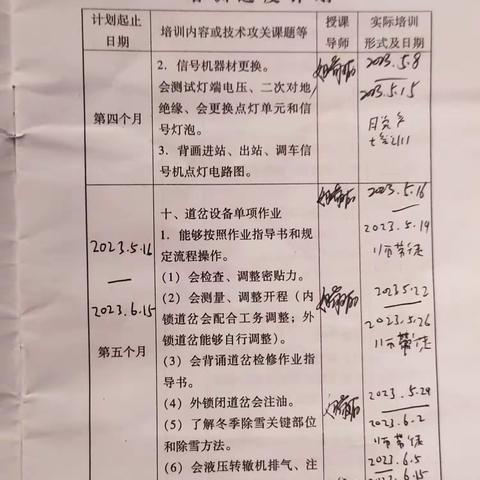 计划起止
日期
培训内容或技术攻关课题等
授课
导师
实际培训
形式及日期
第四个月
2. 信号机器材更换。
会测试灯端电压、二次对地
绝缘、会更换点灯单元和信
号灯泡。
3. 背画进站、出站、调车信
号机点灯电路图。
2023.5.8
—
2023.5.15
2023.5.16
—
2023.6.15
第五个月
十、道岔设备单项作业
1. 能够按照作业指导书和规
定流程操作。
(1) 会检查、调整密贴力。
(2) 会测量、调整开程（内
锁道岔会配合工务调整；外
锁道岔能够自行调整）。
(3) 会背诵道岔检修作业指
导书。
(4) 外锁闭道岔会注油。
(5) 了解冬季除雪关键部位
和除雪方法。
(6) 会液压转辙机排气、注
2023.5.16
—
2023.5.19
2023.5.22
—
2023.5.26
2023.5.29
—
2023.6.2
2023.6.5
2023.6.15